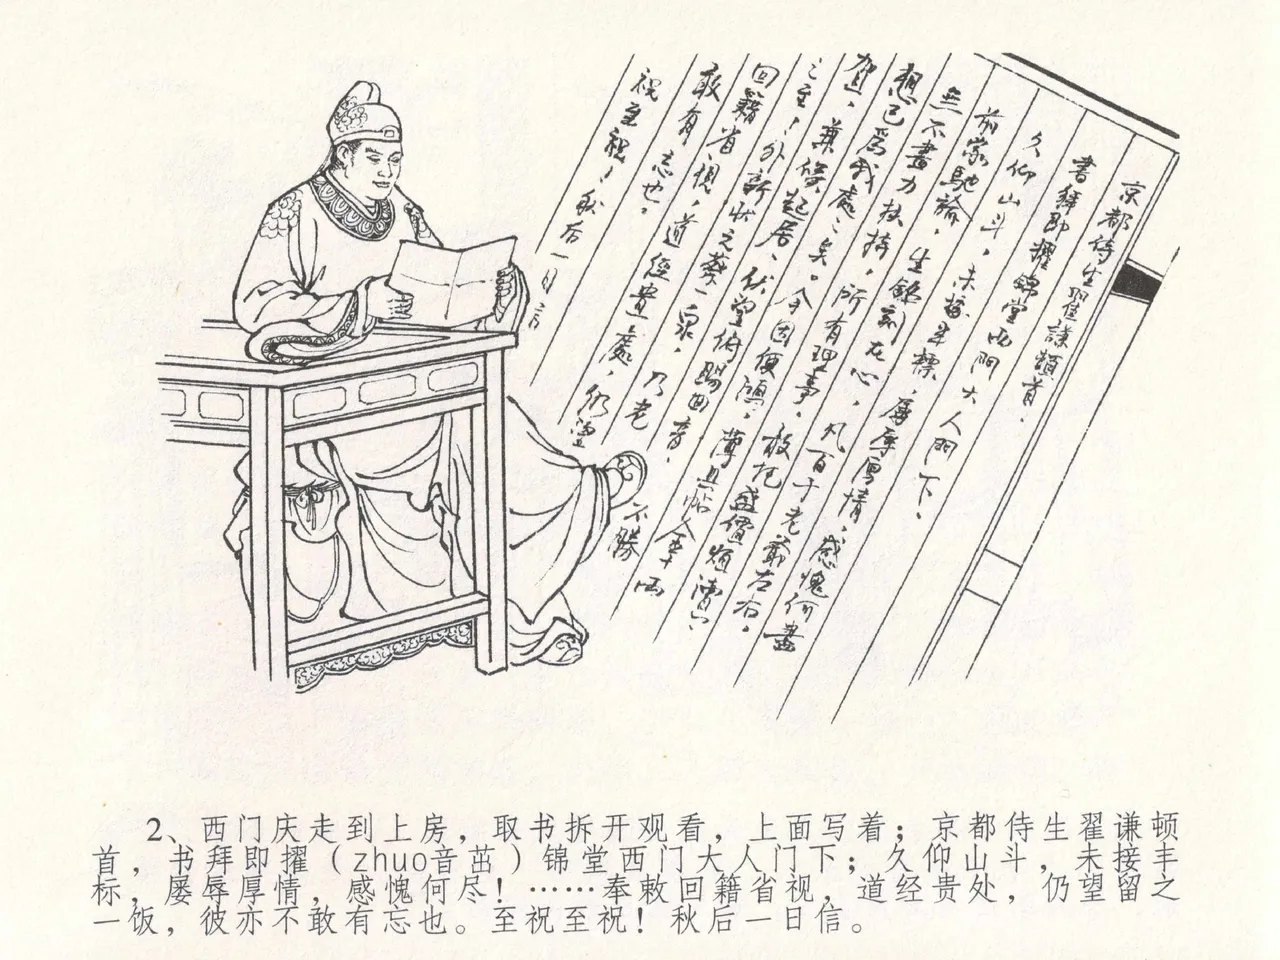 京都侍生翟謙頓首．
書拜即擢錦堂西門大人門下．
久仰山斗，未接丰標，屢辱厚情，感愧何盡
前蒙馳諭，生銘刻在心，凡百于老爺左右，
無不盡力扶持，所有理事，敢托盛價煩瀆，
想已爲我處之矣。今因便鴻，薄具帖金十两
賀，兼候起居，伏望俯賜回音，不勝
2、西门庆走到上房，取书拆开观看，上面写着；京都侍生翟谦顿
首，书拜即擢（zhuo音茁）锦堂西门大人门下；久仰山斗，未接丰
标，屡辱厚情，感愧何尽！……奉敕回籍省视，道经贵处，仍望留之
一饭，彼亦不敢有忘也。至祝至祝！秋后一日信。